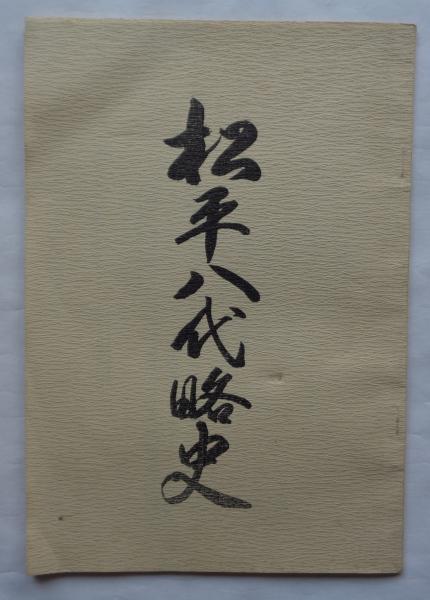 松平八代略史